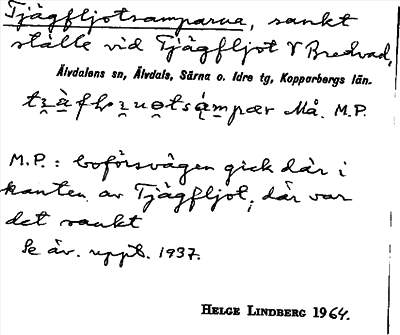 Tjägfljotsamparna, sankt
ställe vid Tjägfljot V Bredvad,
Älvdalens sn, Älvdals, Särna o. Idre tg, Kopparbergs län.
Må. M.P.
M.P.: boförsvägen gick där i
kanten av Tjägfljot, där var
det sankt
Se äv. uppt. 1937.
HELGE LINDBERG 1964.